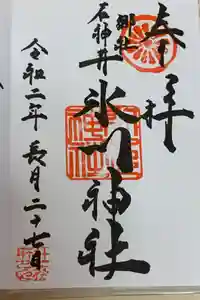 奉拝
郷社
石神井
氷川神社
令和二年長月二十七日